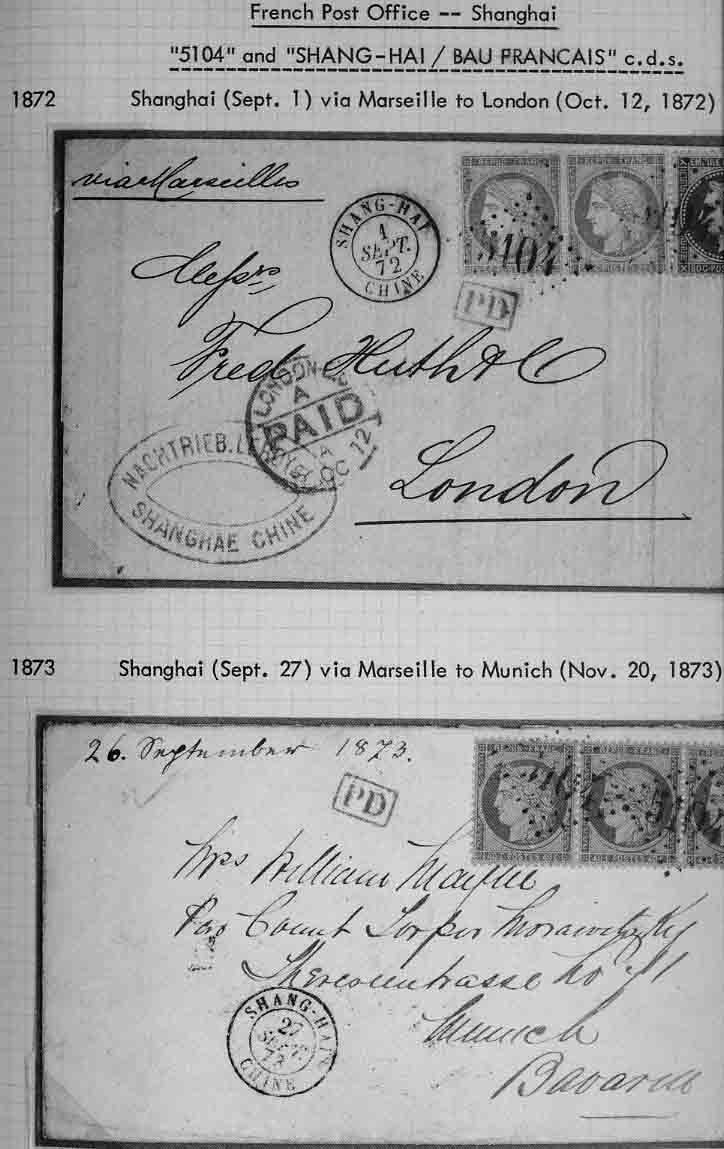 French Post Office -- Shanghai
"5104" and "SHANG-HAI / BAU FRANCAIS" c.d.s.
1872 Shanghai (Sept. 1) via Marseille to London (Oct. 12, 1872)
via Marseilles
REPUB FRANC REPUB FRANC EMPIRE
SHANG-HAI
1
SEPT.
72
CHINE
5104
PD
Messrs
Fred Huth & C
LONDON
A
PAID
OC 12
London
NACHTRIEB.
SHANGHAE CHINE
1873 Shanghai (Sept. 27) via Marseille to Munich (Nov. 20, 1873)
26. September 1873.
REPUB FRANC REPUB FRANC
PD
Mrs William Mayne
Count
No
SHANG-HAI
27
SEPT.
73
CHINE
Munich
Bavaria